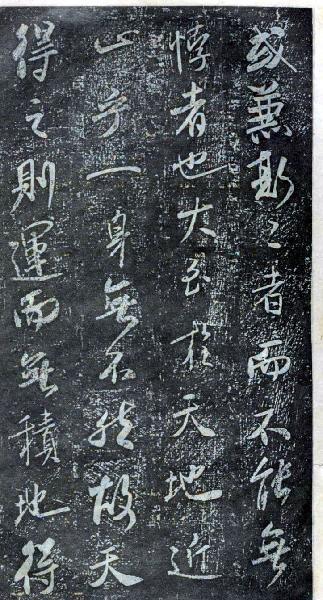 或兼斯二者而不能無
悖者也大至於天地近
止乎一身無不然故天
得之則運而無積地得